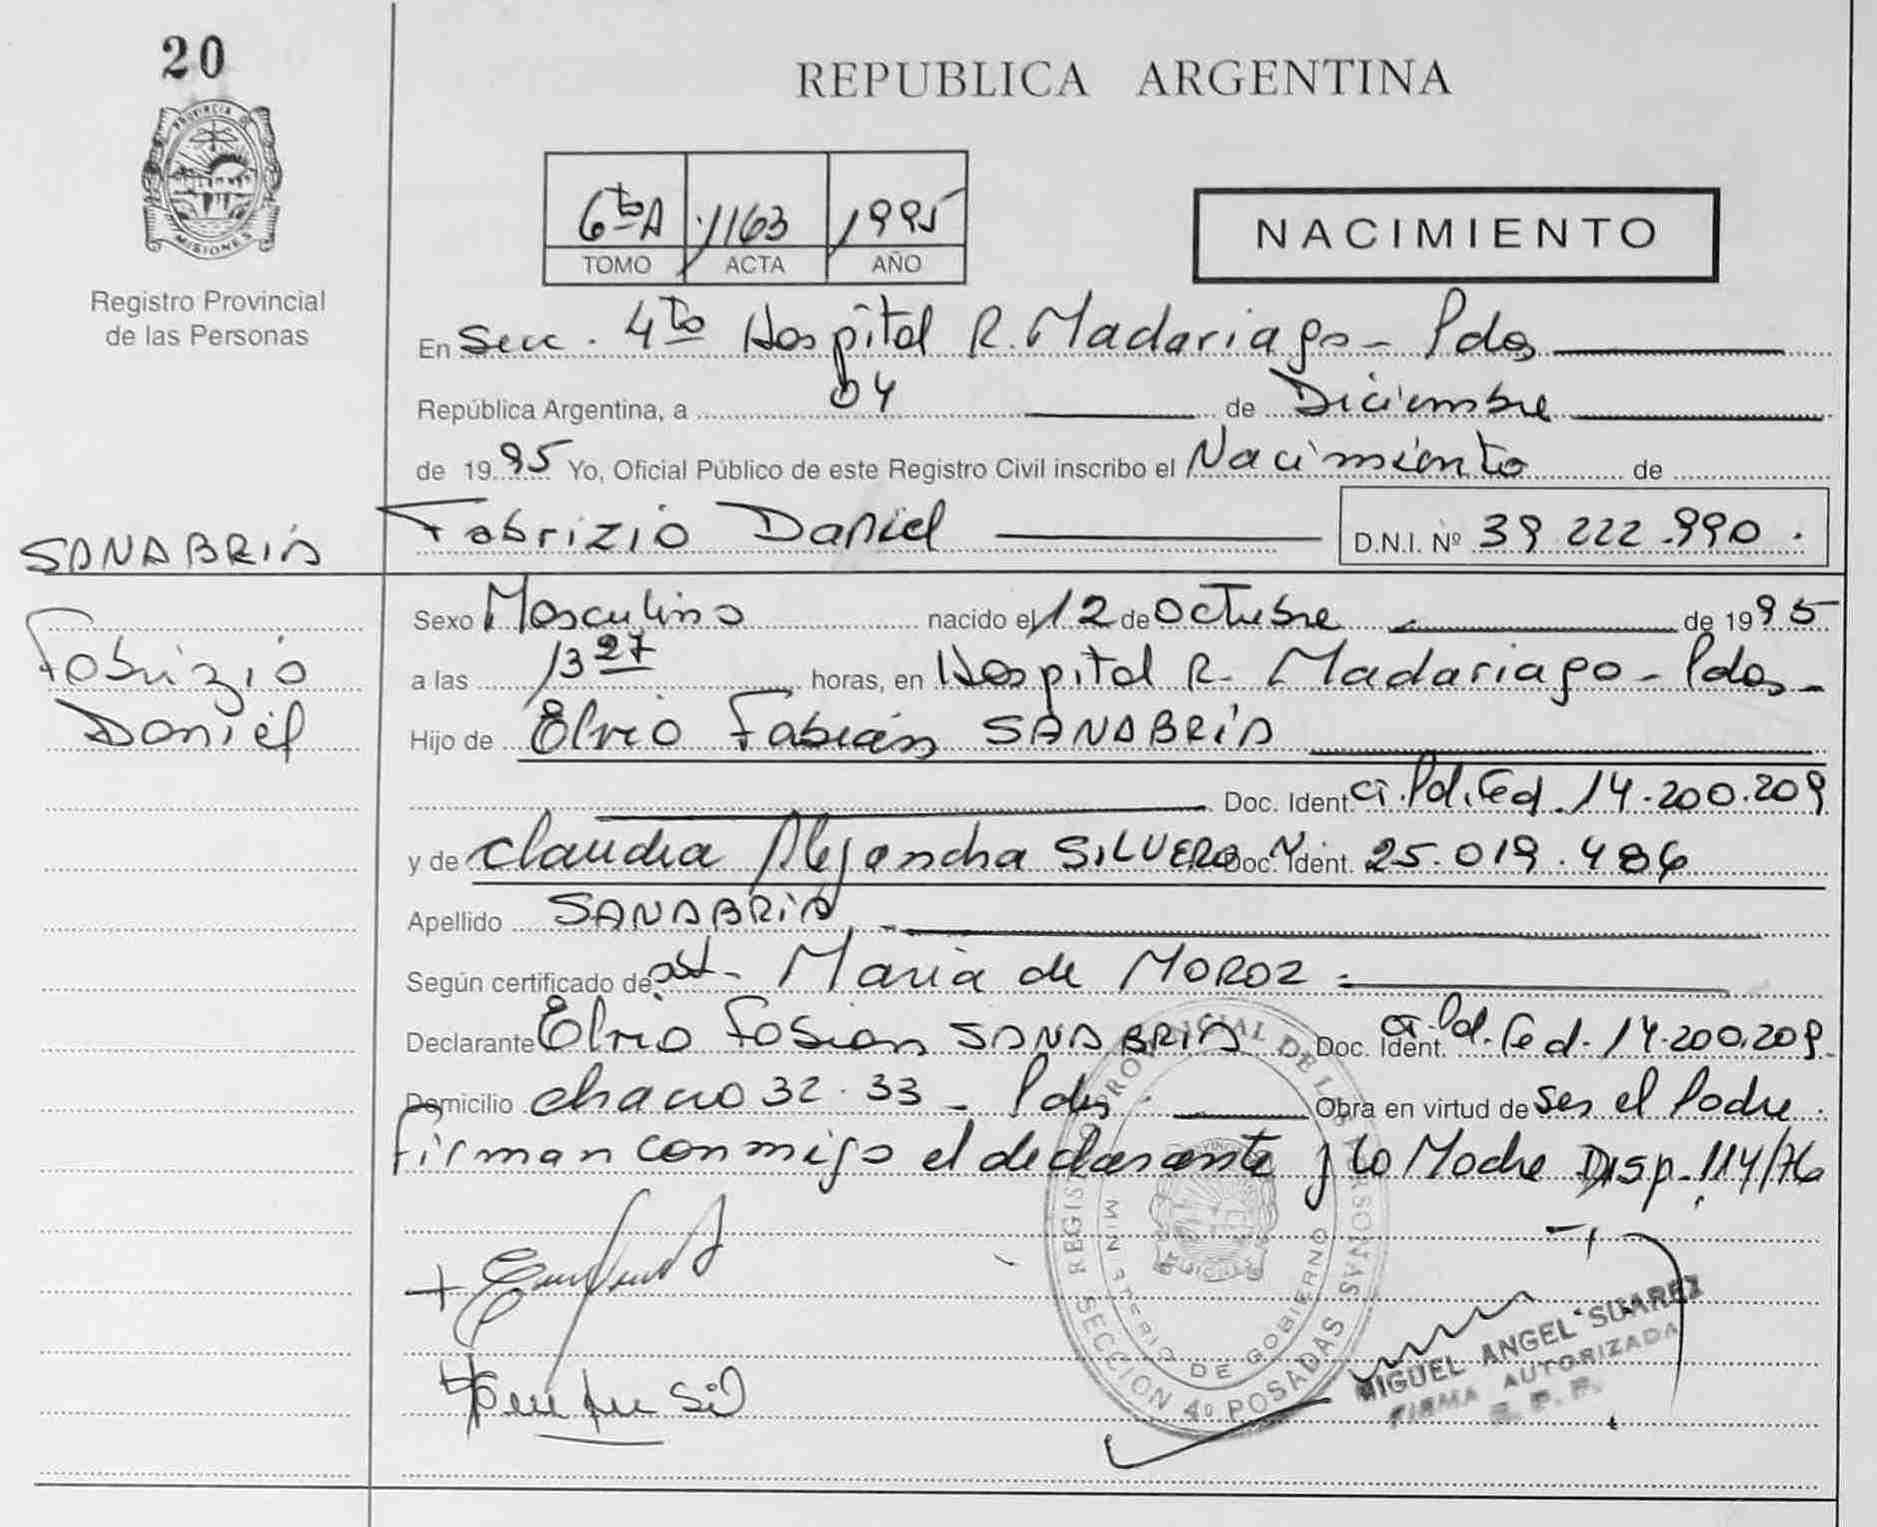 20
PROVINCIA DE
MISIONES
Registro Provincial
de las Personas
REPUBLICA ARGENTINA
6toA 1163 1995
TOMO ACTA AÑO
NACIMIENTO
En Secc. 4ta Hospital R. Madariaga - Pdas
República Argentina, a 04 de Diciembre
de 1995 Yo, Oficial Público de este Registro Civil inscribo el Nacimiento de
SANABRIA Fabrizio Daniel D.N.I. Nº 39 222.990.
Fabrizio
Daniel
Sexo Masculino nacido el 12 de Octubre de 1995
a las 13 27 horas, en Hospital R. Madariaga - Pdas -
Hijo de Elvio Fabián SANABRIA
Doc. Ident. Ci. Pol. Fed. 14.200.209
y de Claudia Alejandra SILVERO Doc. Ident. 25.019.486
Apellido SANABRIA
Según certificado de obst- Maria de MOROZ
Declarante Elvio Fabian SANABRIA Doc. Ident. Ci. Pol. Fed. 14.200.209
Domicilio chaco 32.33 - Pdas. Obra en virtud de ser el Padre.
Firman conmigo el declarante y la Madre Disp. 114/76
REGISTRO PROVINCIAL DE LAS PERSONAS
MINISTERIO DE GOBIERNO
SECCION 4º POSADAS
MIGUEL ANGEL SUAREZ
FIRMA AUTORIZADA
R. P. P.